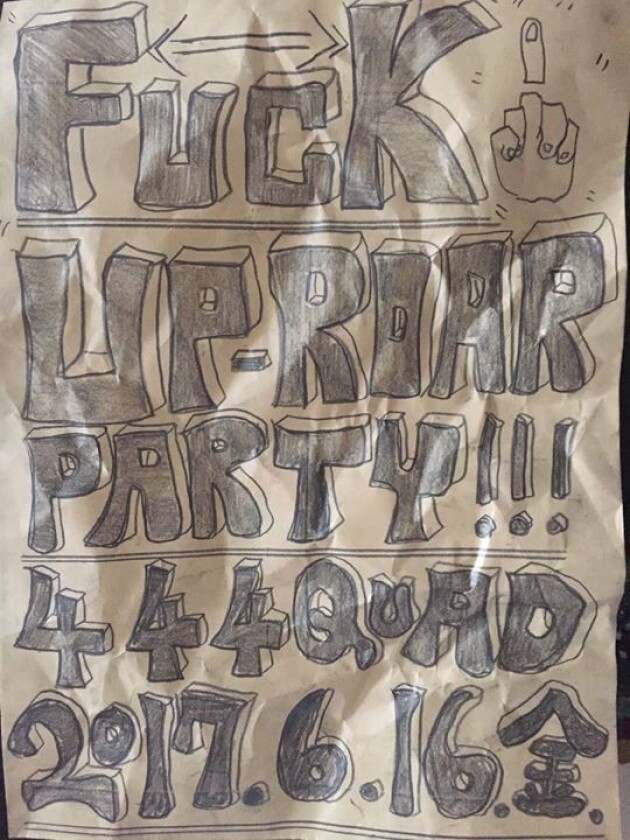 FUCK
UP-ROAR
PARTY!!!
444QUAD
2017.6.16.金